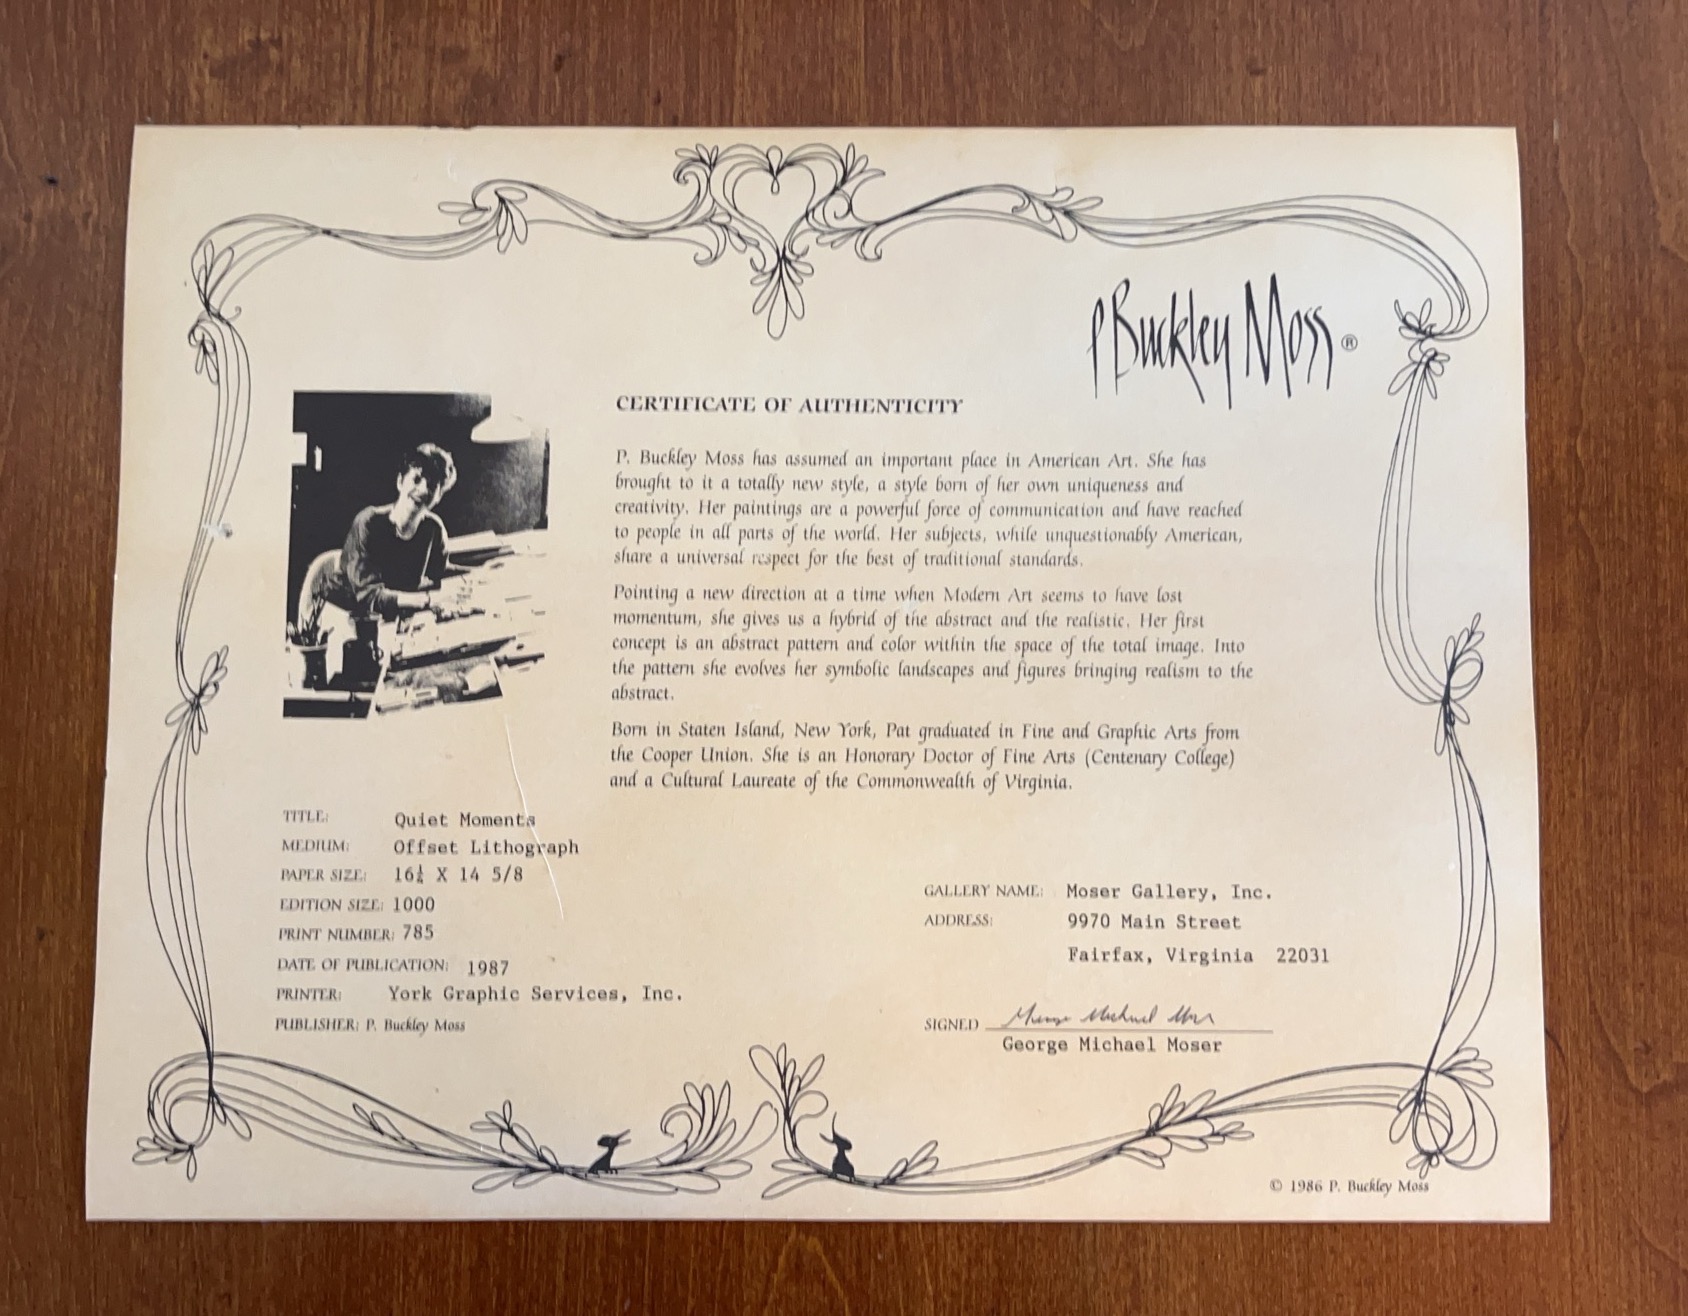 P Buckley Moss ®
CERTIFICATE OF AUTHENTICITY
P. Buckley Moss has assumed an important place in American Art. She has
brought to it a totally new style, a style born of her own uniqueness and
creativity. Her paintings are a powerful force of communication and have reached
to people in all parts of the world. Her subjects, while unquestionably American,
share a universal respect for the best of traditional standards.
Pointing a new direction at a time when Modern Art seems to have lost
momentum, she gives us a hybrid of the abstract and the realistic. Her first
concept is an abstract pattern and color within the space of the total image. Into
the pattern she evolves her symbolic landscapes and figures bringing realism to the
abstract.
Born in Staten Island, New York, Pat graduated in Fine and Graphic Arts from
the Cooper Union. She is an Honorary Doctor of Fine Arts (Centenary College)
and a Cultural Laureate of the Commonwealth of Virginia.
TITLE: Quiet Moments
MEDIUM: Offset Lithograph
PAPER SIZE: X 14 5/8
EDITION SIZE: 1000
PRINT NUMBER: 785
DATE OF PUBLICATION: 1987
PRINTER: York Graphic Services, Inc.
PUBLISHER: P. Buckley Moss
GALLERY NAME: Moser Gallery, Inc.
ADDRESS: 9970 Main Street
Fairfax, Virginia 22031
SIGNED
George Michael Moser
© 1986 P. Buckley Moss